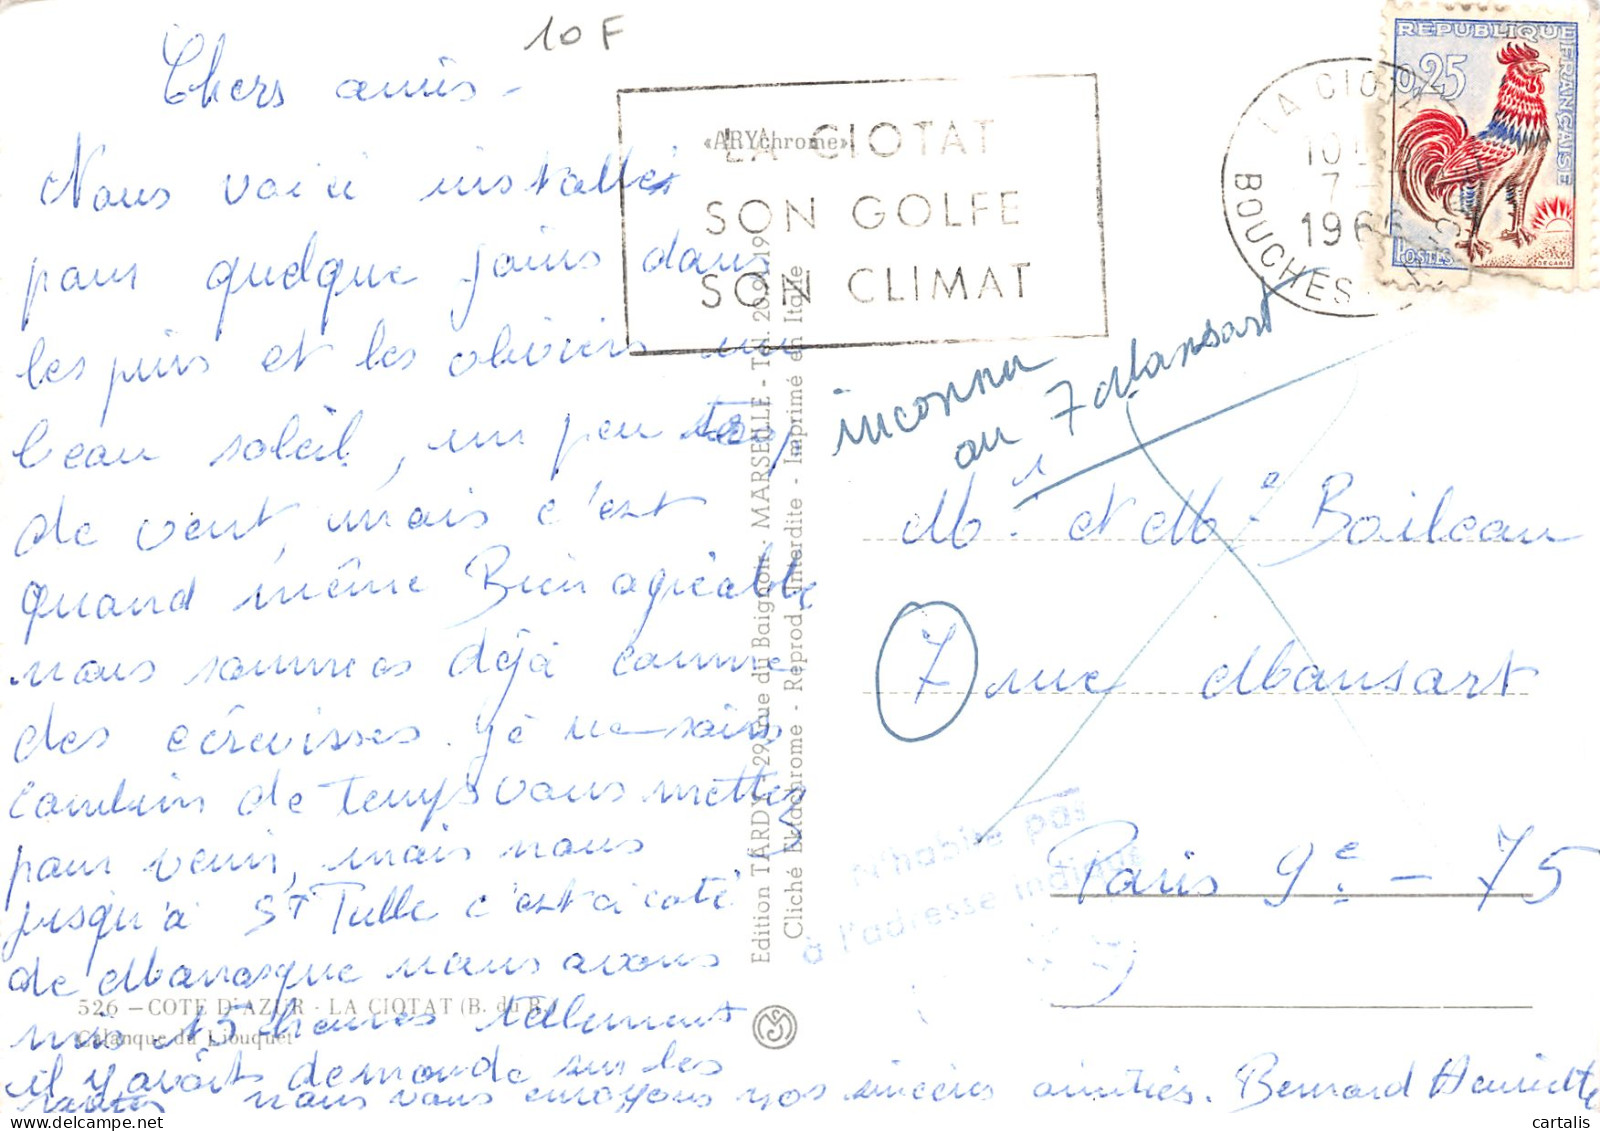 10F
Chers amis -
Nous voici installés
pour quelque jours dans
les pins et les oliviers un
beau soleil, un peu trop
de vent, mais c'est
quand même Bien agréable
nous sommes déjà comme
des écrevisses. Je ne sais
combien de temps vous mettez
pour venir, mais nous
jusqu'à St Tulle c'est à coté
de Manosque nous avons
mis 15 heures tellement
il y avait de monde sur les
routes nous vous envoyons nos sincères amitiés. Bernard Henriette
«ARYchrome»
LA CIOTAT
SON GOLFE
SON CLIMAT
LA CIOTAT
10
7
1966
BOUCHES
REPUBLIQUE FRANÇAISE
0,25
POSTES
DECARIS
inconnu
au 7 Mansart
Mr et Me Boileau
7 rue Mansart
Paris 9e - 75
n'habite pas
à l'adresse indiquée
Edition TARDY - 29, rue du Baignoir - MARSEILLE - Tél. 20.99.19
Cliché Ektachrome - Reprod. Interdite - Imprimé en Italie
526 — COTE D'AZUR - LA CIOTAT (B. du R.)
Calanque du Liouquet
cartalis